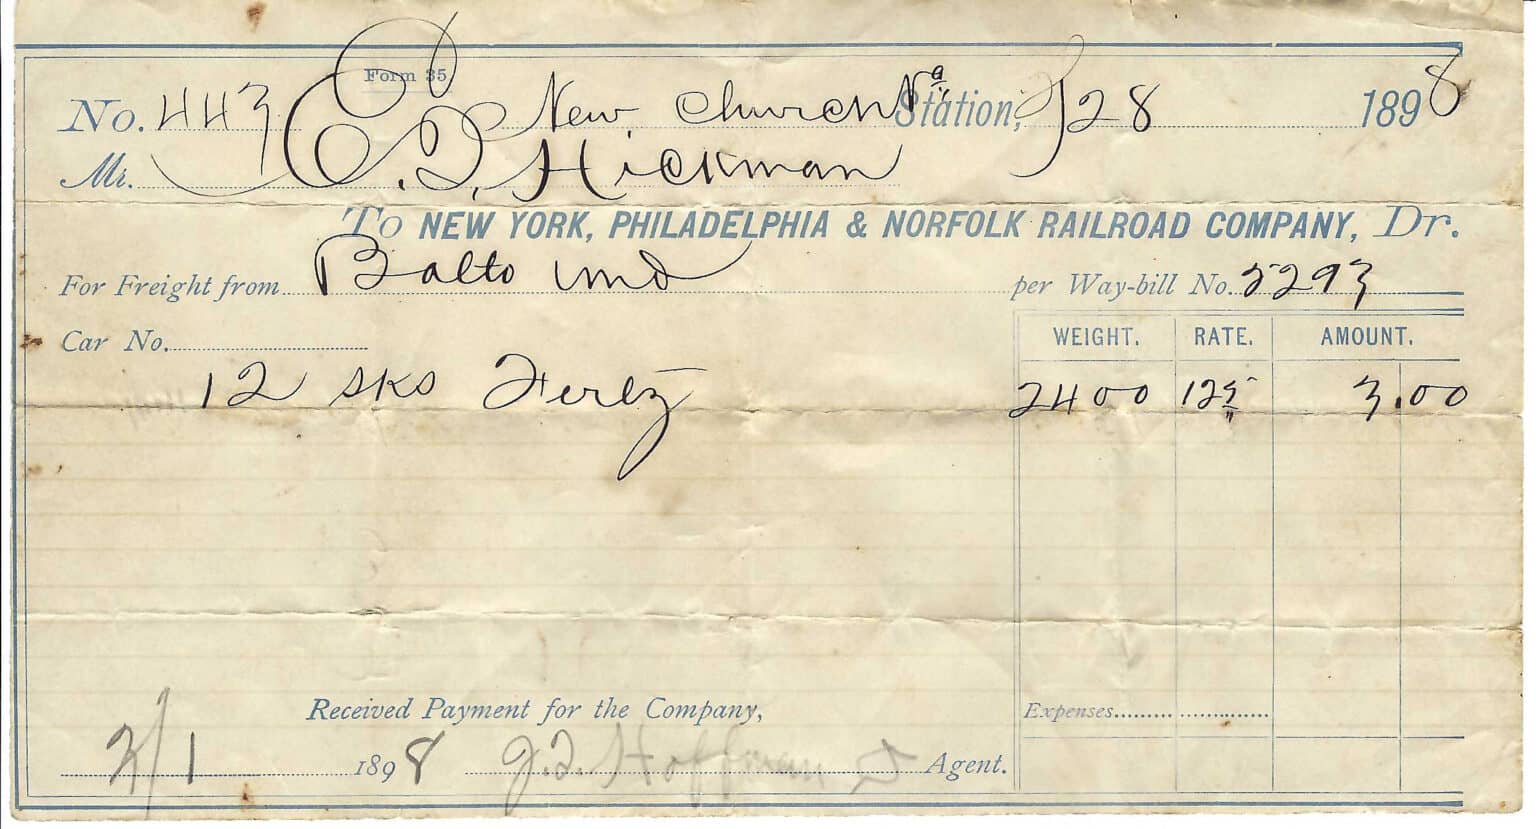 Form 35.
No. 443 New Church Va Station, 28 1898
Mr. Hickman
To NEW YORK, PHILADELPHIA & NORFOLK RAILROAD COMPANY, Dr.
For Freight from Balto Md per Way-bill No. 2293
Car No.
WEIGHT. RATE. AMOUNT.
12 sks Ferlz 2400 125 3.00
Received Payment for the Company,
Expenses
2/1 1898 J. T. Hoffman Agent.